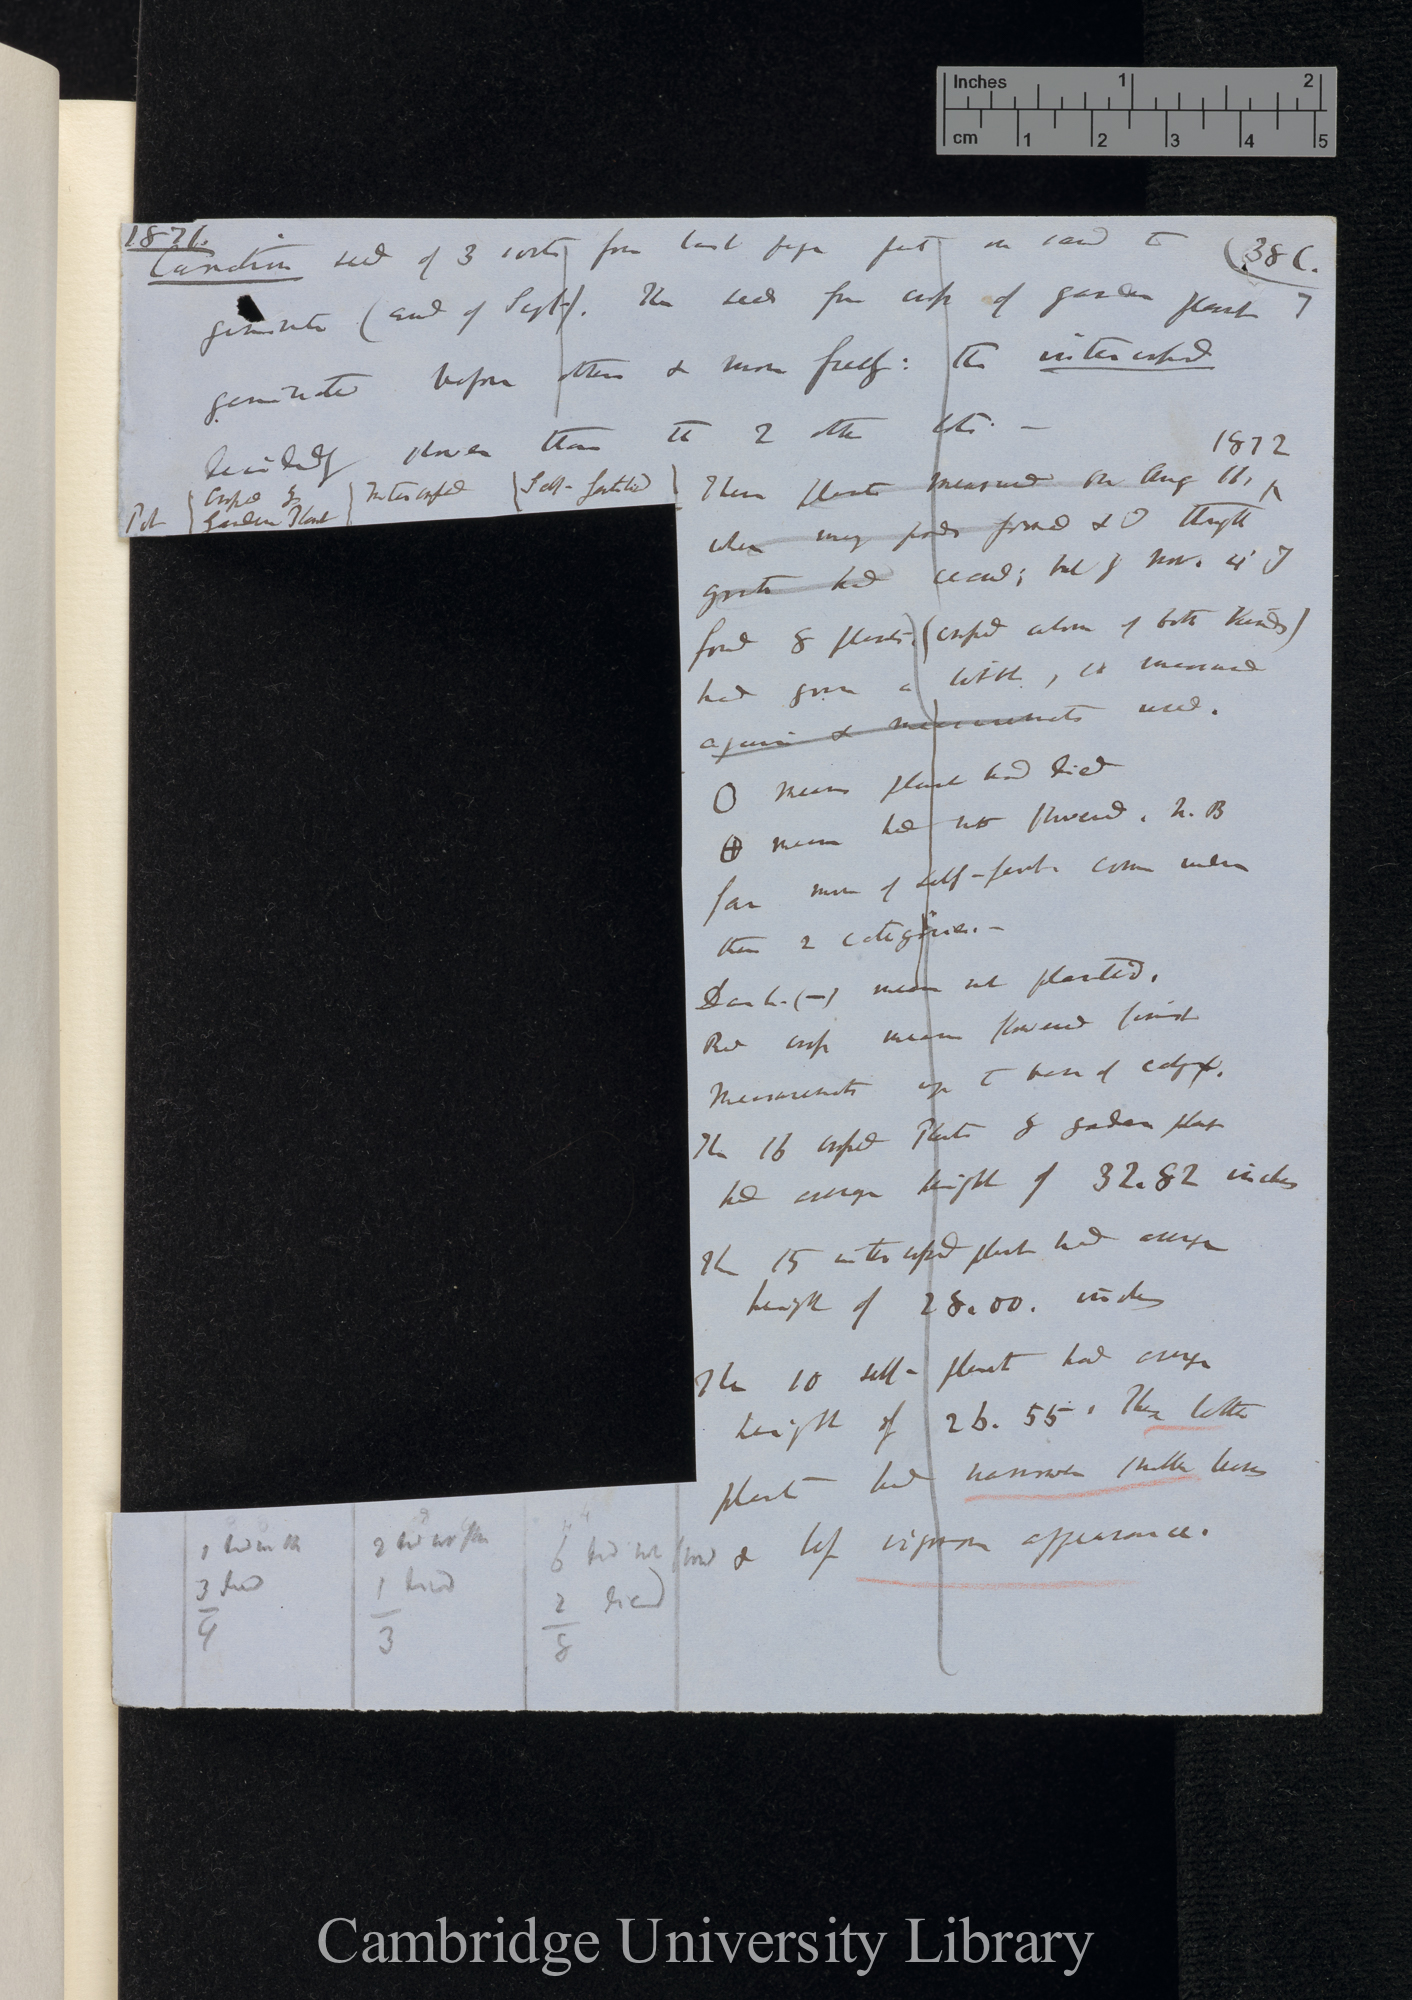 Inches 1 2
cm 1 2 3 4 5
1871.
(38 C.
Carnation seed of 3 sorts from last page put on sand to
germinate (end of Sept). The seeds from cross of garden plant
germinated before others & more freely: the intercrossed
decidedly slower than the 2 other lots. —
1872
Pot
Crossed by
Garden Plant
Intercrossed
Self-fertilised
These plants measured on Aug 16,
when many pods formed & I thought
growth had ceased; but by Nov. 4 I
found 8 plants (crossed alone of both kinds)
had grown a little, so measured
again & measurements used.
O means plant had died
⊕ means had not flowered. N.B
far more of self-fert. come under
these 2 categories. —
Dash (—) means not planted.
Red cross means flowered first
Measurements up to base of calyx.
The 16 crossed Plants by garden plant
had average height of 32.82 inches
The 15 intercrossed plants had average
height of 28.00. inches
The 10 self-plants had average
height of 26.55. These latter
plants had narrower smaller leaves
& less vigorous appearance.
1 had not
3 died
4
2 had not flow
1 died
3
6 had not flowd
2 died
8
Cambridge University Library